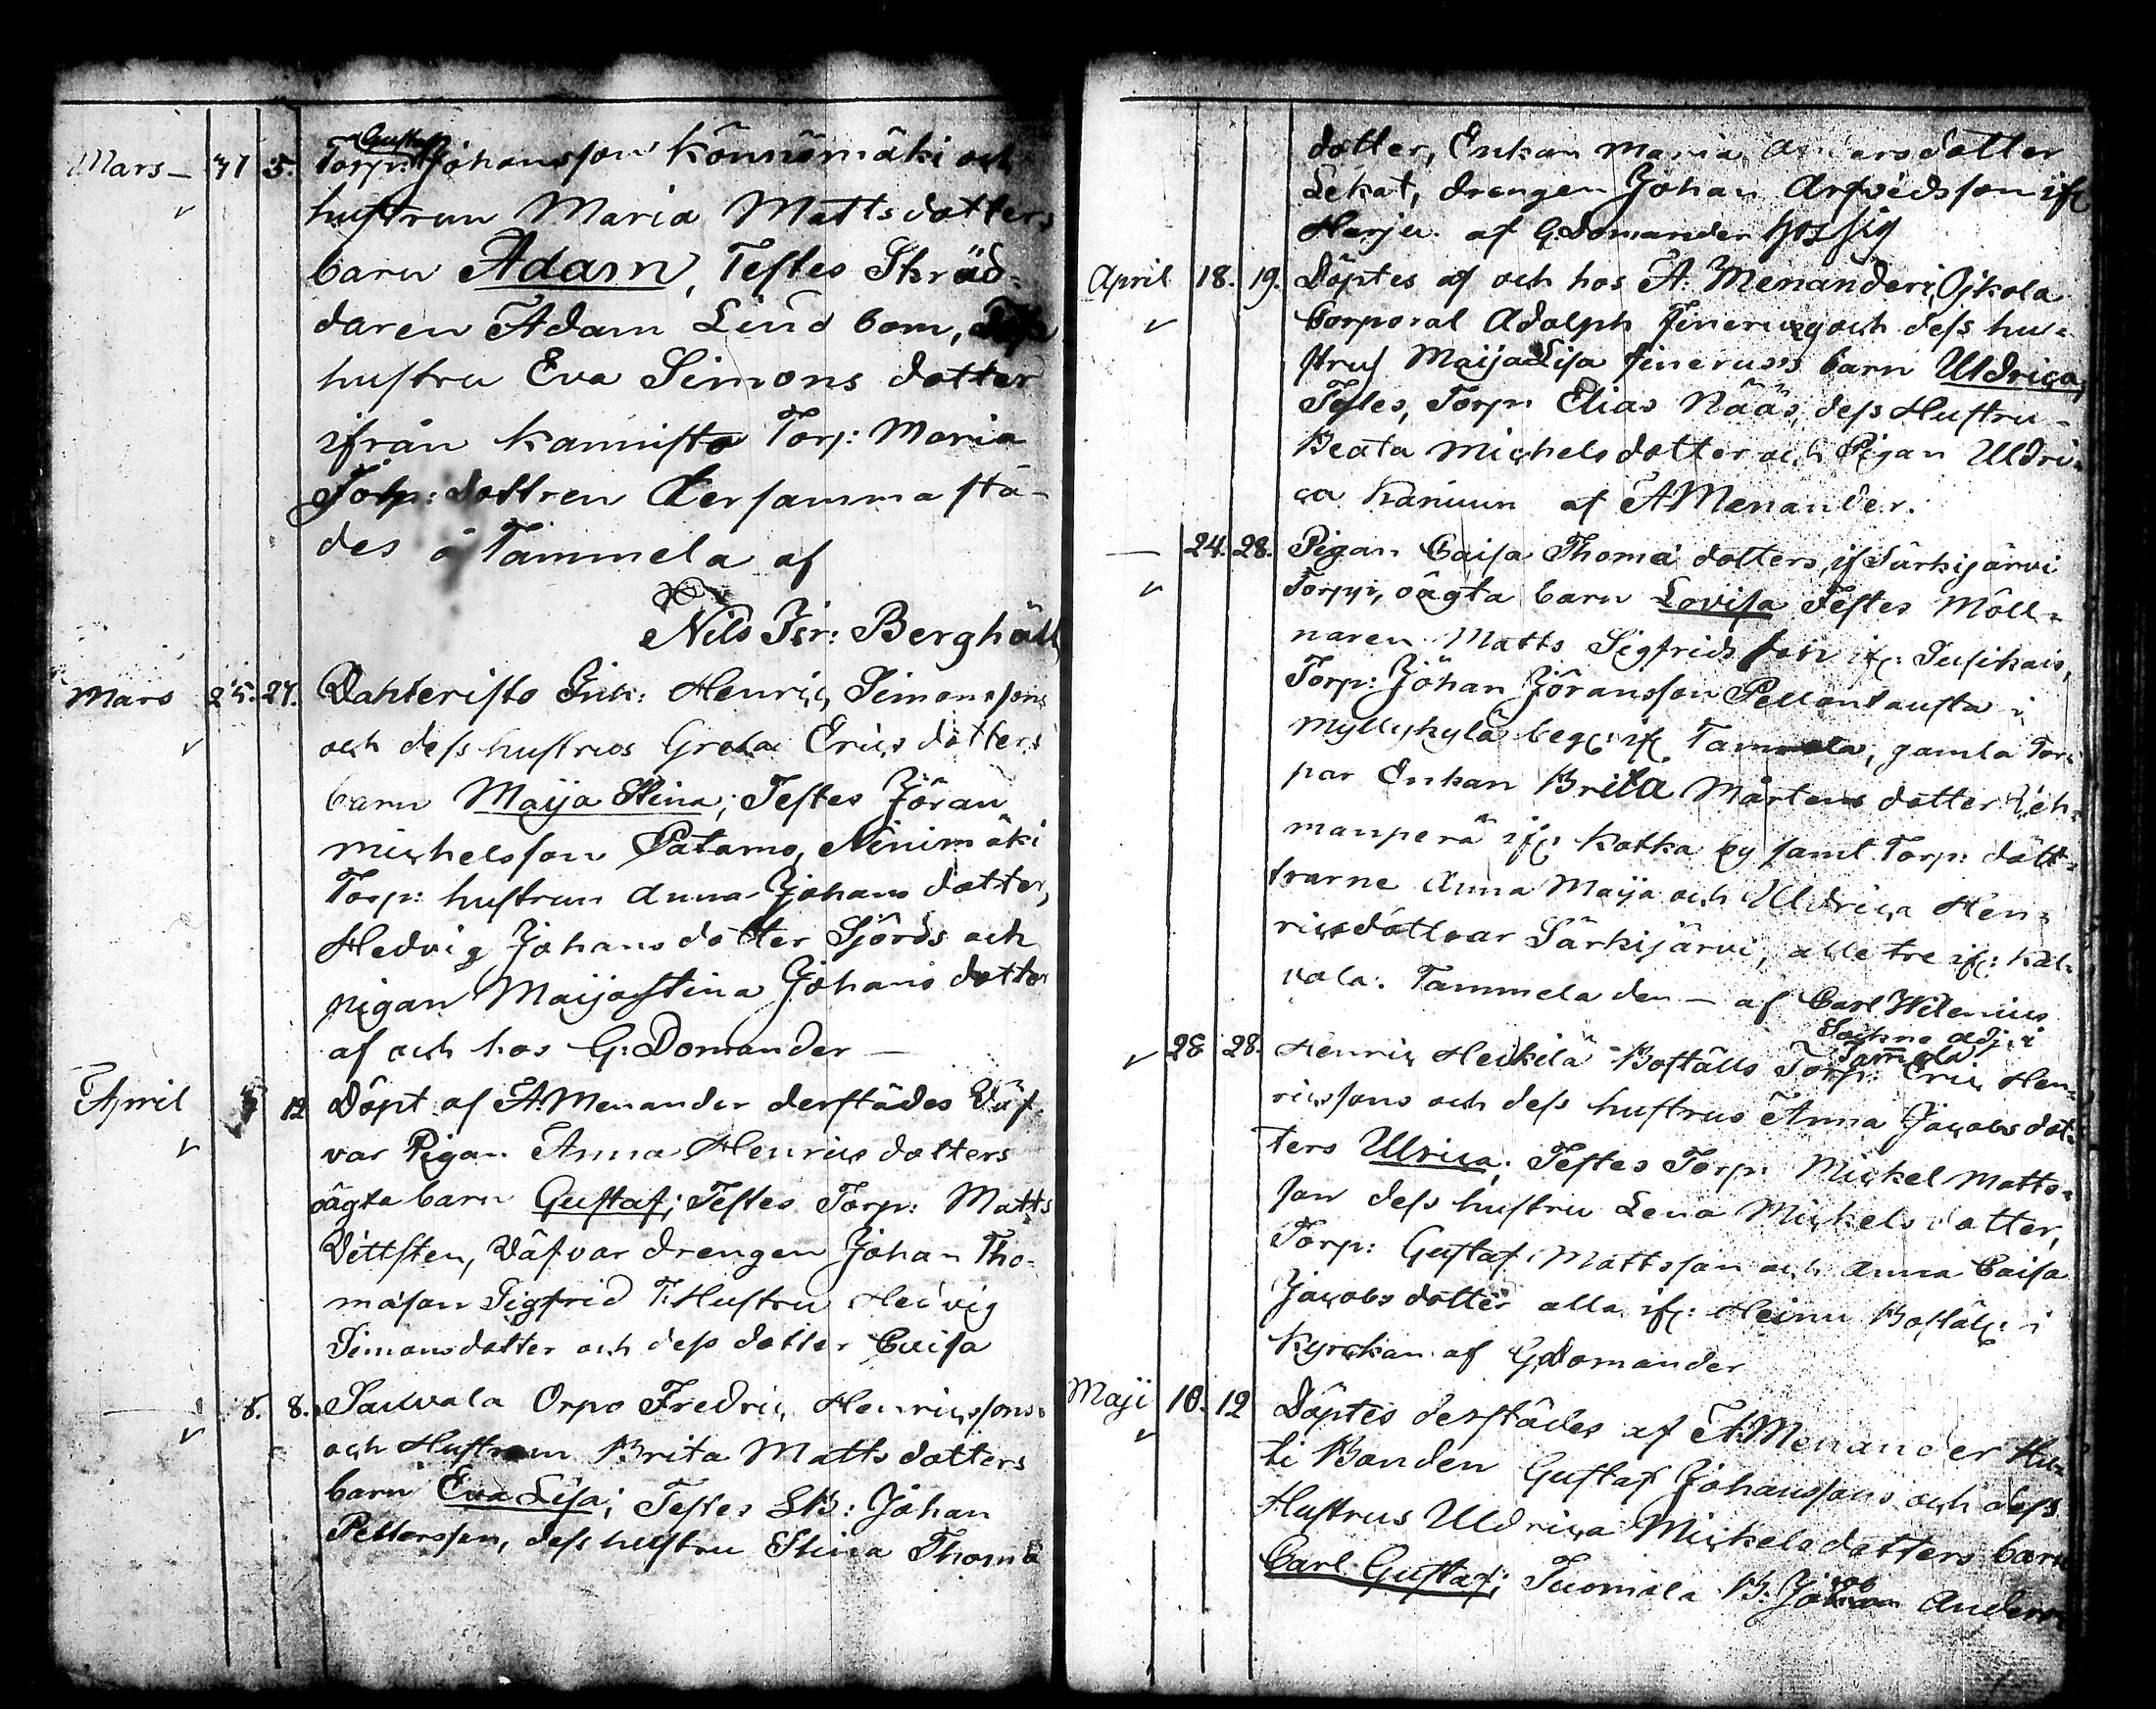 Mars – 31 5. Torp: Gustaf Johansson Könnömäki och
hustrun Maria Mattsdotters
barn Adam, Testes Skräd-
daren Adam Lindbom,
hustru Eva Simons dotter
ifrån Kannisto Torp: Maria
Torp: dottren dersammastä-
des å Tammela af
Nils Isr: Berghäll
Mars 25. 27. Dahteristo Henric Simonssons
och dess hustrus Greta Erics dotters
barn Maija Stina; Testes Jöran
Michelsson Patamo, Ninimäki
Torp: hustrun Anna Johans dotter,
Hedvig Johans dotter Sjörds och
pigan Maija Stina Johans dotter
af och hos G: Domander –
April 12 Döpt af A: Menander derstädes Väf-
var Pigan Anna Henrics dotters
oägta barn Gustaf; Testes Torp: Matts
Vittsten, Väfvar drengen Johan Tho-
masson Sigfrid T: Hustru Hedvig
Simonsdotter och dess dotter Caisa
8. 8. Sauvala Orpo Fredric Henricssons
och Hustrun Brita Mattsdotters
barn Eva Lisa; Testes Johan
Pettersson, dess hustru Stina Thomä
dotter, Enkan Maria Andersdotter
Lekat, drengen Johan Arfvedsson if:
Harju. af G: Domander hos sig
April 18. 19. Döptes af och hos A: Menander i Ojkola
Corporal Adolph och dess hu-
strus Maija Lisa barn Uldrica,
Testes, Torp: Elias Nääs, dess Hustru
Beata Michelsdotter och Pigan Uldri-
ca af A Menander.
– 24. 28. Pigan Caisa Thomä dotters, if Särkijärvi
Torp:, oägta barn Lovisa Testes Möll-
naren Matts Sigfridsson if: Susikais,
Torp: Johan Jöransson Pellontausta i
Myllykylä beg: if Tammela, gamla Tor-
par Enkan Brita Mårtens dotter
manperä if: Kotka by samt Torp: dött-
rarne Anna Maija och Uldrica Hen-
ricsdöttrar Särkijärvi, alle tre if: Kal-
vala. Tammela den – af Carl Helenius
Sockne Adj: i
Tammela
28 28. Henric Heikilä Boställs Torp: Eric Hen-
ricssons och dess hustrus Anna Jacobs dot-
ters Ulrica; Testes Torp: Mickel Matts-
son dess hustru Lena Mickels dotter,
Torp: Gustaf Mattsson och Anna Caisa
Jacobs dotter alla if: Heinu Boställ: i
Kyrckan af G: Domander
Maji 10. 12 Döptes derstädes af A: Menander Hu-
ti Bonden Gustaf Johanssons och dess
Hustrus Uldrica Mickelsdotters barn
Carl Gustaf; Tuomala B: Jacob Anders